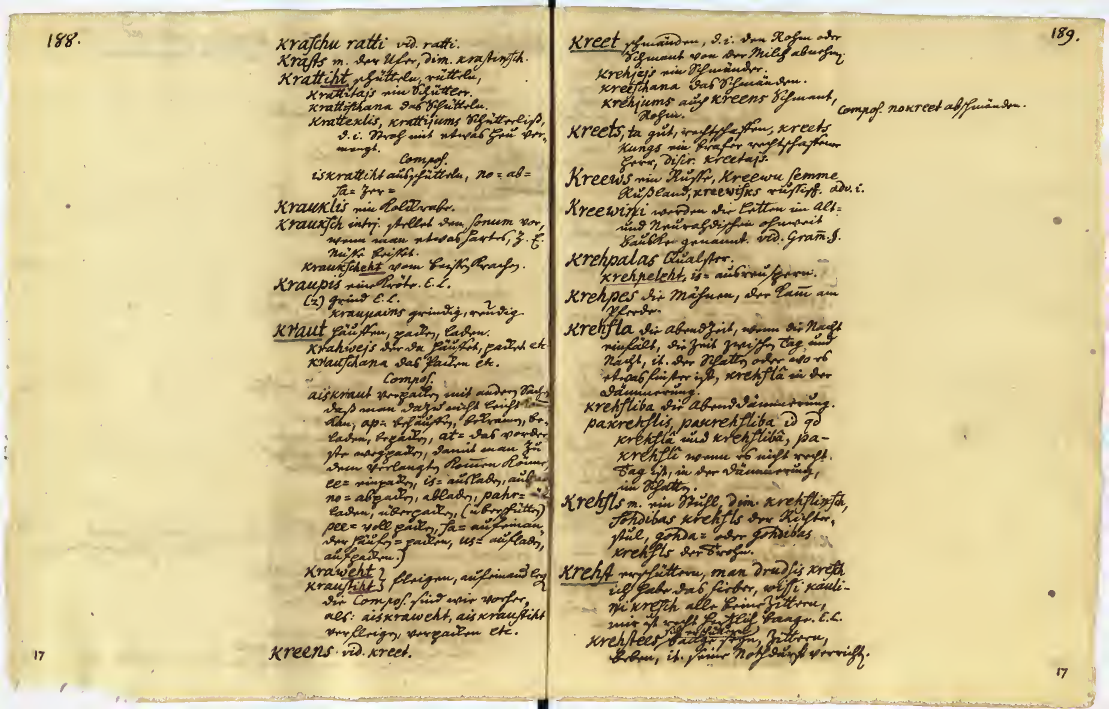 188.
Kraschu ratti vid. ratti.
Krasts m. der Ufer, dim. krastinsch.
Krattiht schütteln, rütteln,
krattitajs ein Schüttler.
krattischana das Schütteln.
kratteklis, krattijums Schütterliß,
d. i. Stroh mit etwas Heu ver-
mengt.
Compos.
iskrattiht ausschütteln, no= ab=
sa= zer=
Krauklis ein Kolkrabe.
Krauksch interj. stellet den sonum vor,
wenn man etwas hartes, z. E.
Nüße beißet.
kraukscheht vom beißen krachen.
Kraupis eine Kröte. E. L.
(2) grind E. L.
kraupains grindig, reudig
Kraut häuffen, packen, laden.
krahwejs der da häuffet, packet etc
krauschana das Packen etc.
Compos.
aiskraut verpacken mit andern Sach
daß man dazu nicht leicht
kan, ap= behäuffen, bekramen, be-
laden, bepacken, at= das vorder
ste wegpacken, damit man zu
dem verlangten kommen könne,
ee= einpacken, is= ausladen,
no= abpacken, abladen, pahr=
laden, überpacken, (überschütten)
pee= voll packen, sa= aufeinan,
der häufen= packen, us= aufladen,
aufpacken.)
Kraweht
Kraustiht } fleigen, aufeinand leg
die Compos. sind wie vorher,
als: aiskraweht, aiskraustiht
verfleigen, verpacken etc.
Kreens vid. kreet.
17
189.
Kreet schmänden, d. i. den Rohm oder
Schmant von der Milch abnehm
krehjejs ein Schmänder.
kreeschana das Schmänden.
krehjums auch kreens Schmant,
Rohm.
Compos. nokreet abschmänden.
Kreets, ta gut, rechtschaffen, kreets
kungs ein braver rechtschaffener
Herr, dicitr. kreetajs.
Kreews ein Ruße, Kreewu semme
Rußland, kreewisks rußisch. adv. i.
Kreewini werden die Letten im Alt=
und Neurahdischen ohnweit
Bauske genannt. vid. Gram. J.
Krehpalas Qualster.
krehpeleht, is= ausreuspern.
Krehpes die Mähnen, der Kam am
Pferde.
Krehsla die Abendzeit, wenn die Nacht
einfält, die Zeit zwischen Tag und
Nacht, it. der Schatten oder wo es
etwas finster ist, krehslâ in der
Dämmerung.
krehsliba die Abenddämmerung.
pakrehslis, pakrehsliba id qd
krehsla und krehsliba, pa-
krehsli wenn es nicht recht
Tag ist, in der Dämmerung,
im Schatten.
Krehsls m. ein Stuhl, dim. krehslinsch,
sohdibas krehsls der Richter,
stul, gohda= oder gohdibas
krehsls der Trohn.
Krehst erschüttern, man drudsis kresch
ich habe das fieber, wissi kauli-
ni kresch alle beine zittern,
mir ist recht hertzlich bange. E. L.
krehstees bange seyn, zittern,
beben, it. seine Nothdurft verricht.
17